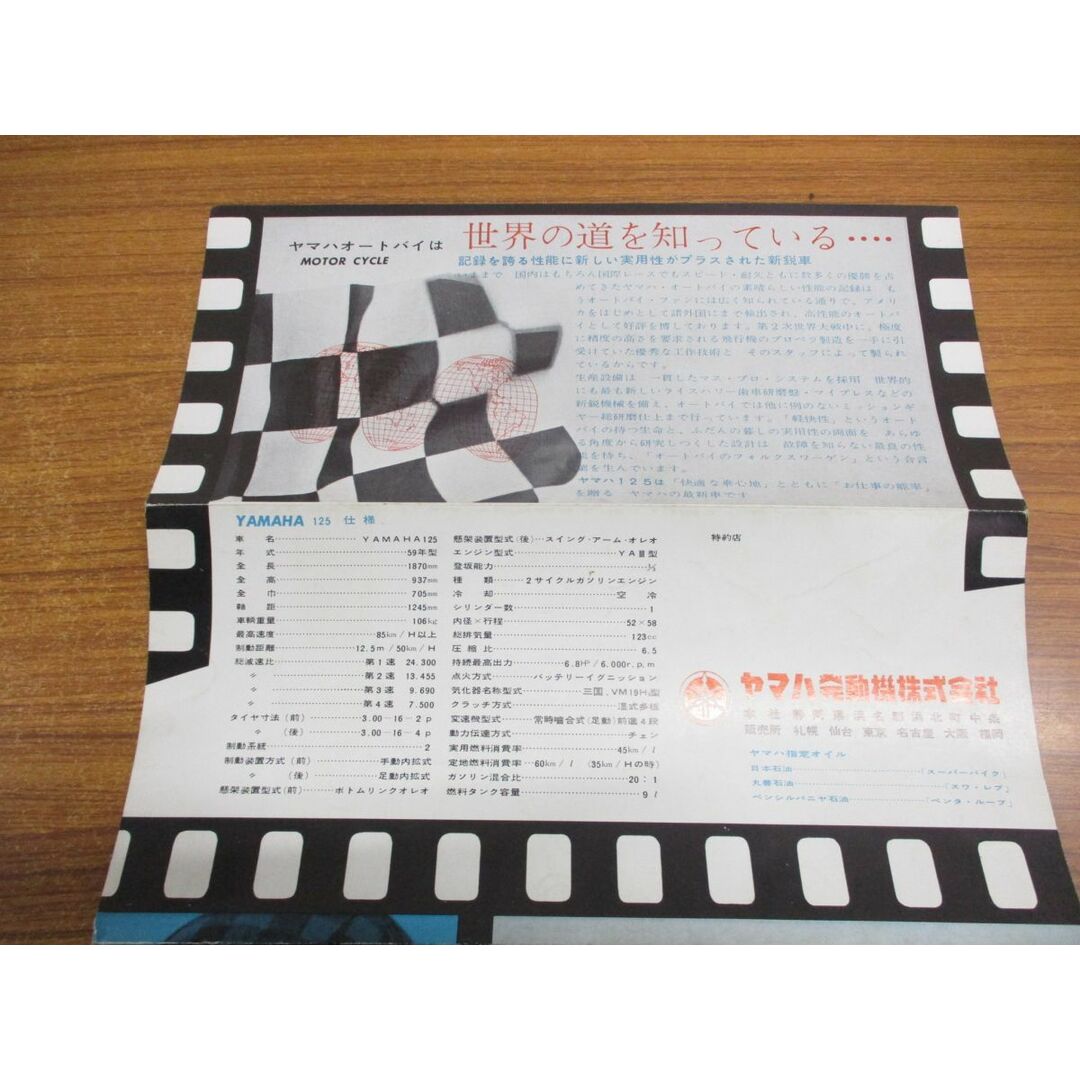 ヤマハオートバイは
MOTOR CYCLE
世界の道を知っている‥‥
記録を誇る性能に新しい実用性がプラスされた新鋭車
いままで 国内はもちろん国際レースでもスピード・耐久ともに数多くの優勝を占
めてきたヤマハ・オートバイの素晴らしい性能の記録は も
うオートバイ・ファンには広く知られている通りで、アメリ
カをはじめとして諸外国にまで輸出され、高性能のオートバ
イとして好評を博しております。第2次世界大戦中に、極度
に精度の高さを要求される飛行機のプロペラ製造を一手に引
受けていた優秀な工作技術と そのスタッフによって製られ
ているからです。
生産設備は 一貫したマス・プロ・システムを採用 世界的
にも最も新しいライスハワー歯車研磨盤・マイプレスなどの
新鋭機械を備え、オートバイでは他に例のないミッションギ
ヤー総研磨仕上まで行っています。「軽快性」というオート
バイの持つ生命と、ふだんの暮しの実用性の両面を あらゆ
る角度から研究しつくした設計は 故障を知らない最良の性
能を持ち、「オートバイのフォルクスワーゲン」という合言
葉を生んでいます。
ヤマハ125は「快適な乗心地」とともに「お仕事の能率」
を贈る ヤマハの最新車です
YAMAHA 125 仕様
車名 YAMAHA125
年式 59年型
全長 1870mm
全高 937mm
全巾 705mm
軸距 1245mm
車輌重量 106kg
最高速度 85km/H以上
制動距離 12.5m/50km/H
総減速比 第1速 24.300
〃 第2速 13.455
〃 第3速 9.690
〃 第4速 7.500
タイヤ寸法(前) 3.00-16-2p
〃 (後) 3.00-16-4p
制動系統 2
制動装置方式(前) 手動内拡式
〃 (後) 足動内拡式
懸架装置型式(前) ボトムリンクオレオ
懸架装置型式(後) スイング・アーム・オレオ
エンジン型式 YAⅢ型
登坂能力
種類 2サイクルガソリンエンジン
冷却 空冷
シリンダー数 1
内径×行程 52×58
総排気量 123cc
圧縮比 6.5
持続最高出力 6.8HP/6.000r.p.m
点火方式 バッテリーイグニッション
気化器名称型式 三国、VM19H
クラッチ方式 湿式多板
変速機型式 常時噛合式(足動)前進4段
動力伝達方式 チェン
実用燃料消費率 45km/l
定地燃料消費率 60km/l (35km/Hの時)
ガソリン混合比 20:1
燃料タンク容量 9l
特約店
ヤマハ発動機株式会社
本社 静岡県浜名郡浜北町中条
販売所 札幌 仙台 東京 名古屋 大阪 福岡
ヤマハ指定オイル
日本石油 「スーパーバイク」
丸善石油 「スワ・レブ」
ペンシルバニヤ石油 「ペンタ・ルーブ」